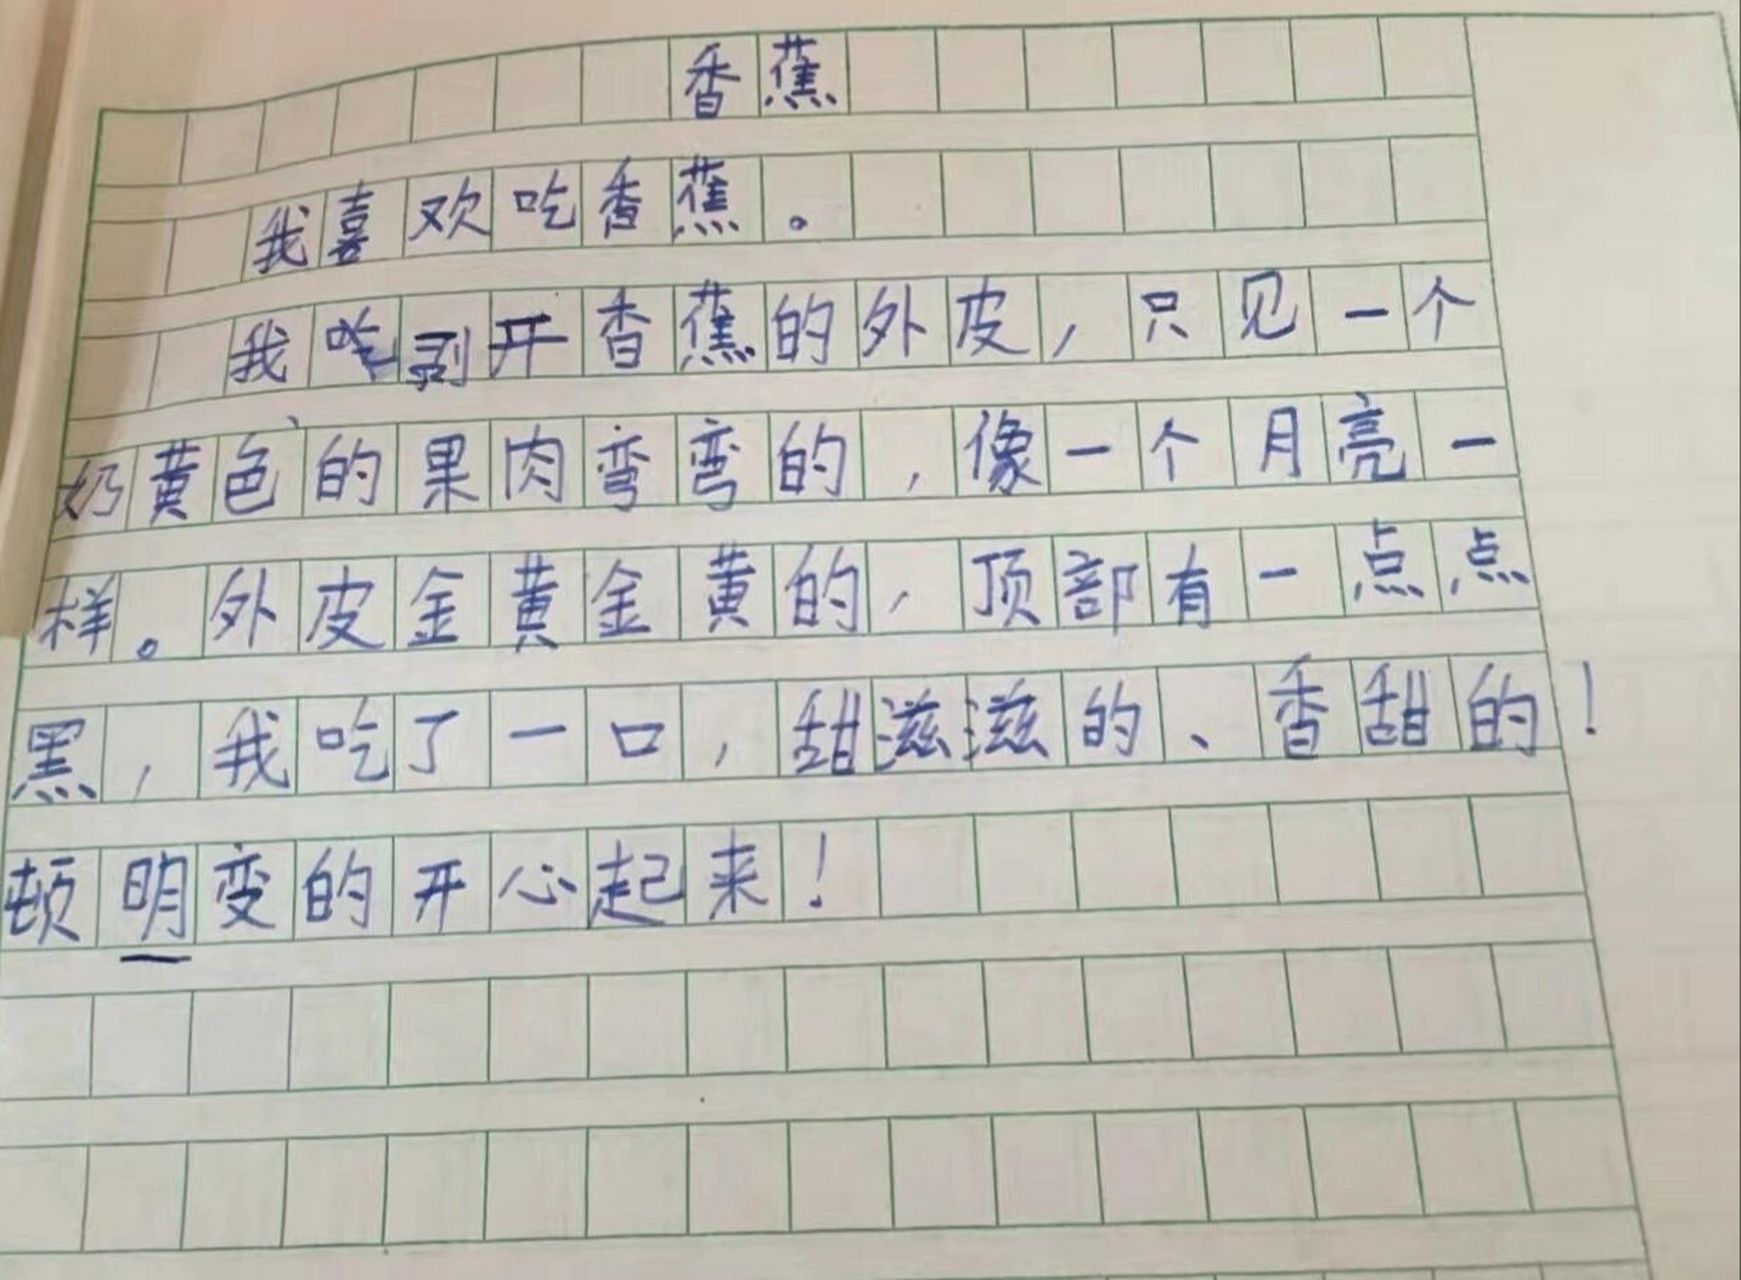 香蕉
我喜欢吃香蕉。
我吃剥开香蕉的外皮，只见一个
奶黄色的果肉弯弯的，像一个月亮一
样。外皮金黄金黄的，顶部有一点点
黑，我吃了一口，甜滋滋的、香甜的！
顿明变的开心起来！